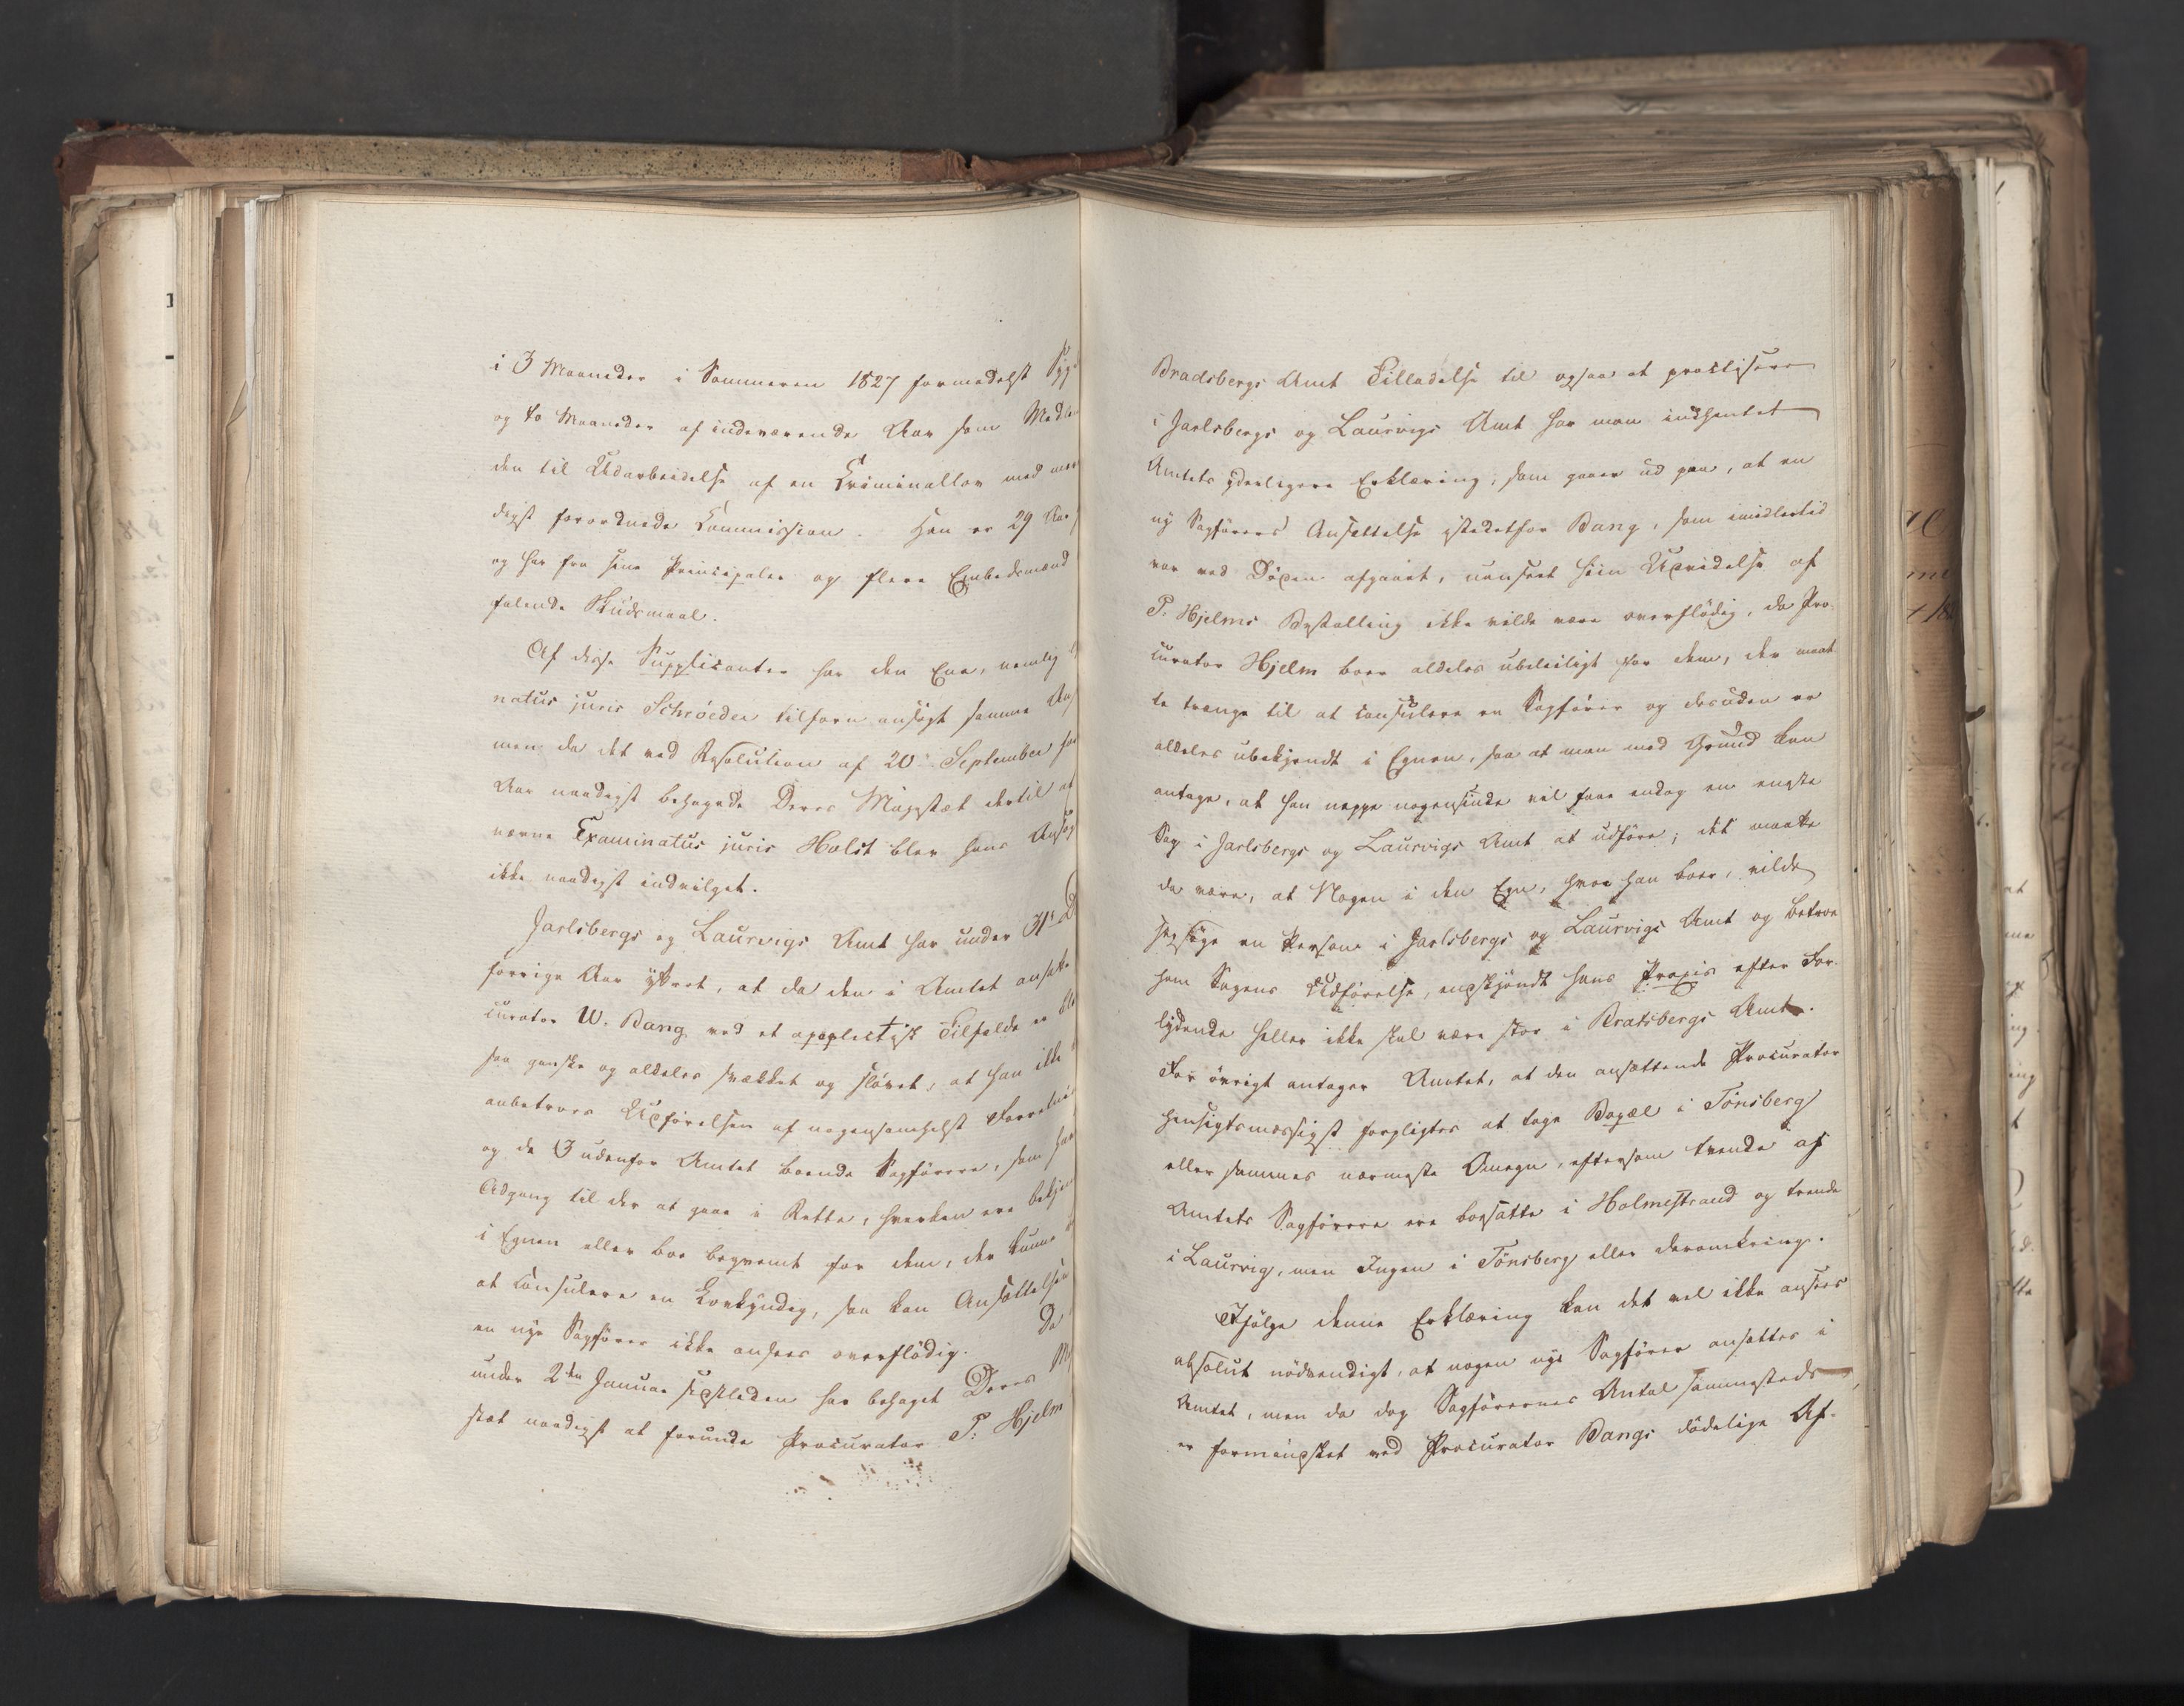 i 3 Maaneder i Sommeren 1827 formedelst Syg
og to Maaneder af indeværende Aar som Medlem
den til Udarbeidelse af en Criminallov med
digst forordnede Commission. Han er 29 Aar
og har fra sine Principaler og flere Embedsmænd
falende Skudsmaal.
Af disse Supplicanter har den Ene, nemlig
natus juris Schröeder tilforn ansögt samme
men da det ved Resolution af 20 September
Aar naadigst behagede Deres Majestæt dertil at
nævne Examinatus juris Holst blev hans Ansög
ikke naadigst indvilget.
Jarlsbergs og Laurvigs Amt har under 31te D
forrige Aar yttret, at da den i Amtet ansatte
curator W. Bang ved et apoplectisk Tilfælde er
saa ganske og aldeles svækket og slövet, at han ikke
anbetroes Udförelsen af nogensomhelst Forretni
og de 3 udenfor Amtet boende Sagförere, som har
Adgang til der at gaae i Rette, hverken ere bekjen
i Egnen eller boe beqvemt for dem, der kunne
at consulere en Lovkyndig, saa kan Ansættelsen
en nye Sagförer ikke ansees overflödig. Da
under 2den Januar sidstleden har behaget Deres M
stæt naadigst at forunde Procurator P. Hjelm
Bradsbergs Amt Tilladelse til ogsaa at practisere
i Jarlsbergs og Laurvigs Amt har man indhentet
Amtets yderligere Erklæring, som gaaer ud paa, at en
ny Sagförers Ansættelse istedetfor Bang, som imidlertid
var ved Döden afgaaet, uanseet hiin Udvidelse af
P. Hjelms Bestalling ikke vilde være overflödig, da Pro-
curator Hjelm boer aldeles ubeleiligt for dem, der maat-
te trænge til at consulere en Sagförer og desuden er
aldeles ubekjendt i Egnen, saa at man med Grund kan
antage, at han neppe nogensinde vil faae endog en eneste
Sag i Jarlsbergs og Laurvigs Amt at udföre; det maatte
da være, at Nogen i den Egn, hvor han boer, vilde
sagsöge en Person i Jarlsbergs og Laurvigs Amt og betroe
ham Sagens Udförelse, endskjöndt hans Praxis efter For-
lydende heller ikke skal være stor i Bratsbergs Amt.
For övrigt antager Amtet, at den ansættende Procurator
hensigtsmæssigst forpligtes at tage Bopæl i Tönsberg
eller sammes nærmeste Omegn, eftersom trende af
Amtets Sagförere ere bosatte i Holmestrand og trende
i Laurvig, men Ingen i Tönsberg eller deromkring.
Ifölge denne Erklæring kan det vel ikke ansees
absolut nödvendigt, at nogen nye Sagförer ansættes i
Amtet, men da dog Sagförernes Antal sammesteds
er formindsket ved Procurator Bangs dödelige Af-